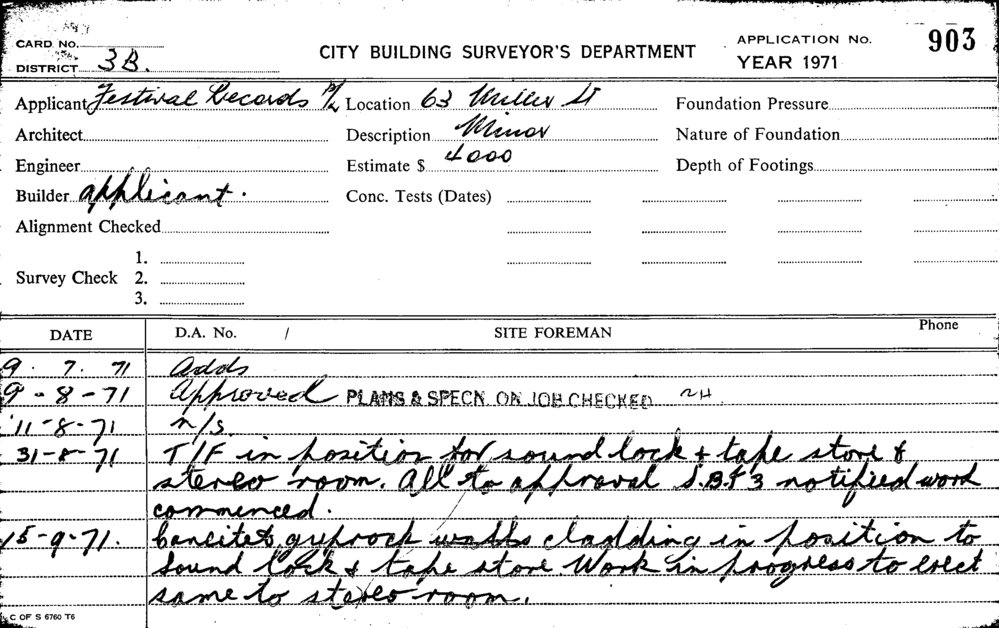 CARD NO.
DISTRICT 3B.
CITY BUILDING SURVEYOR'S DEPARTMENT
APPLICATION No. 903
YEAR 1971
Applicant Festival Records P/L Location 63 Miller St Foundation Pressure
Architect Description Minor Nature of Foundation
Engineer Estimate $ 4000 Depth of Footings
Builder applicant. Conc. Tests (Dates)
Alignment Checked
1.
Survey Check 2.
3.
DATE D.A. No. / SITE FOREMAN Phone
9. 7. 71 Adds
9-8-71 Approved PLANS & SPECN ON JOB CHECKED
11-8-71 n/s
31-8-71 T/F in position for sound lock & tape store &
stereo room. All to approval S.B.F3 notified work
commenced.
15-9-71. gyprock walls cladding in position to
sound lock & tape store. Work in progress to erect
same to stereo room.
C OF S 6760 T6